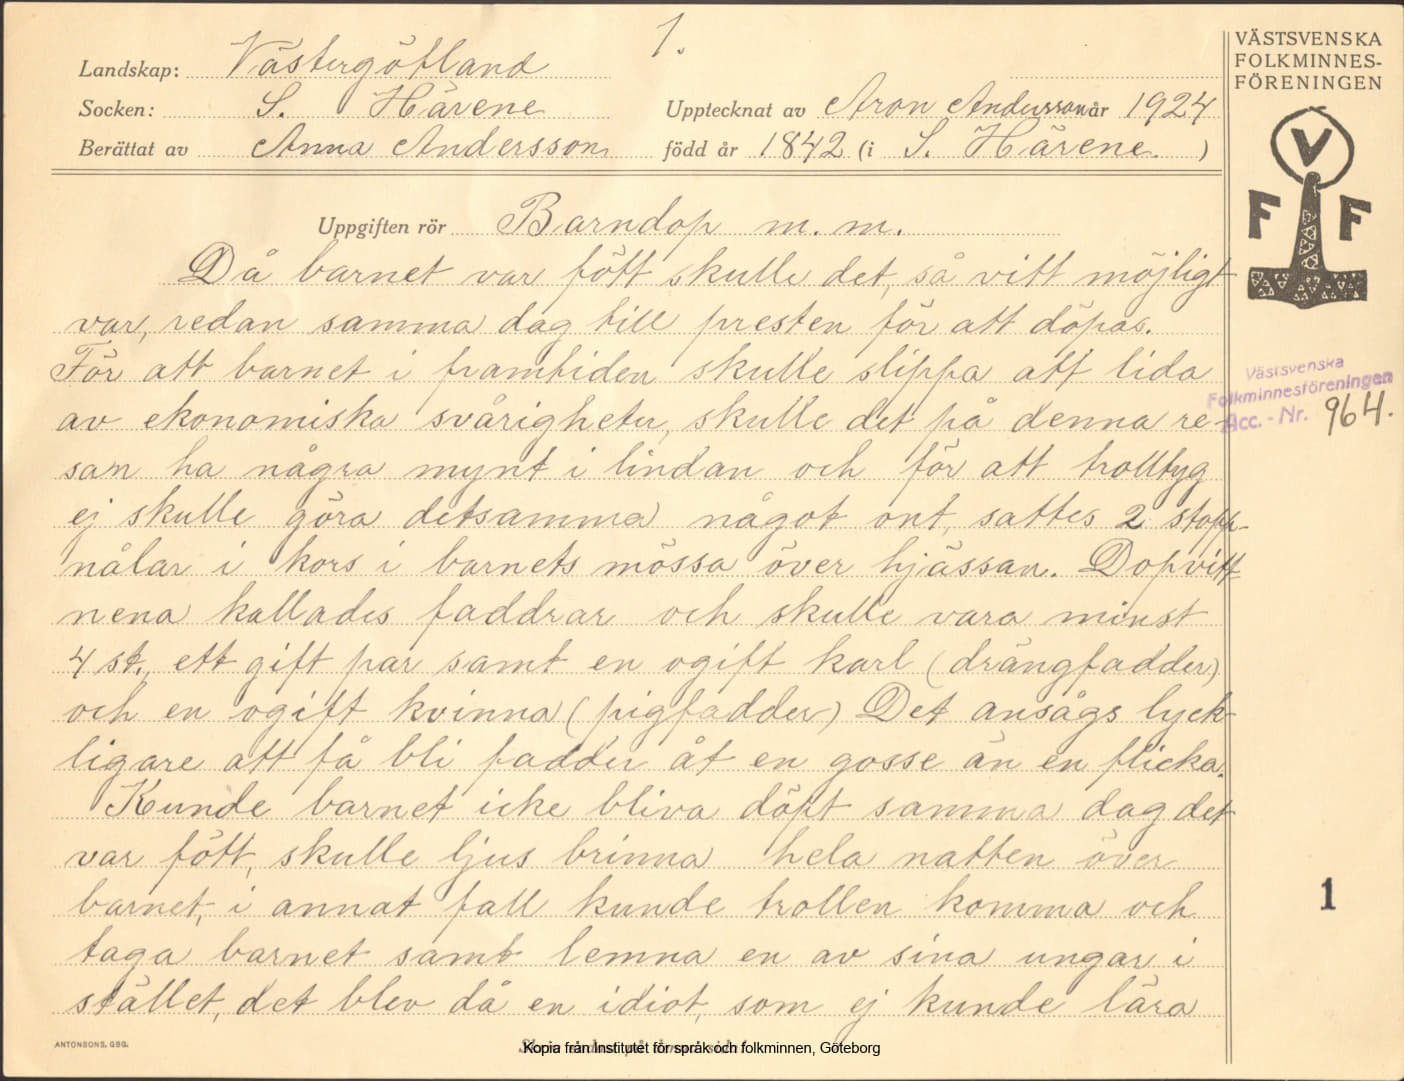 1.
Landskap: Västergötland
Socken: S. Härene
Upptecknat av Aron Andersson år 1924
Berättat av Anna Andersson född år 1842 (i S. Härene. )
Uppgiften rör Barndop m. m.
Då barnet var fött skulle det, så vitt möjligt
var, redan samma dag till presten för att döpas.
För att barnet i framtiden skulle slippa att lida
av ekonomiska svårigheter, skulle det på denna re-
san ha några mynt i lindan och för att trolltyg
ej skulle göra detsamma något ont, sattes 2 stopp-
nålar i kors i barnets mössa över hjässan. Dopvitt-
nena kallades faddrar och skulle vara minst
4 st., ett gift par samt en ogift karl (drängfadder)
och en ogift kvinna (pigfadder) Det ansågs lyck-
ligare att få bli fadder åt en gosse än en flicka.
Kunde barnet icke bliva döpt samma dag det
var fött, skulle ljus brinna hela natten över
barnet, i annat fall kunde trollen komma och
taga barnet samt lemna en av sina ungar i
stället, det blev då en idiot, som ej kunde lära
ANTONSONS, GBG.
Kopia från Institutet för språk och folkminnen, Göteborg
VÄSTSVENSKA
FOLKMINNES-
FÖRENINGEN
V
F F
Västsvenska
Folkminnesföreningen
Acc. - Nr. 964.
1